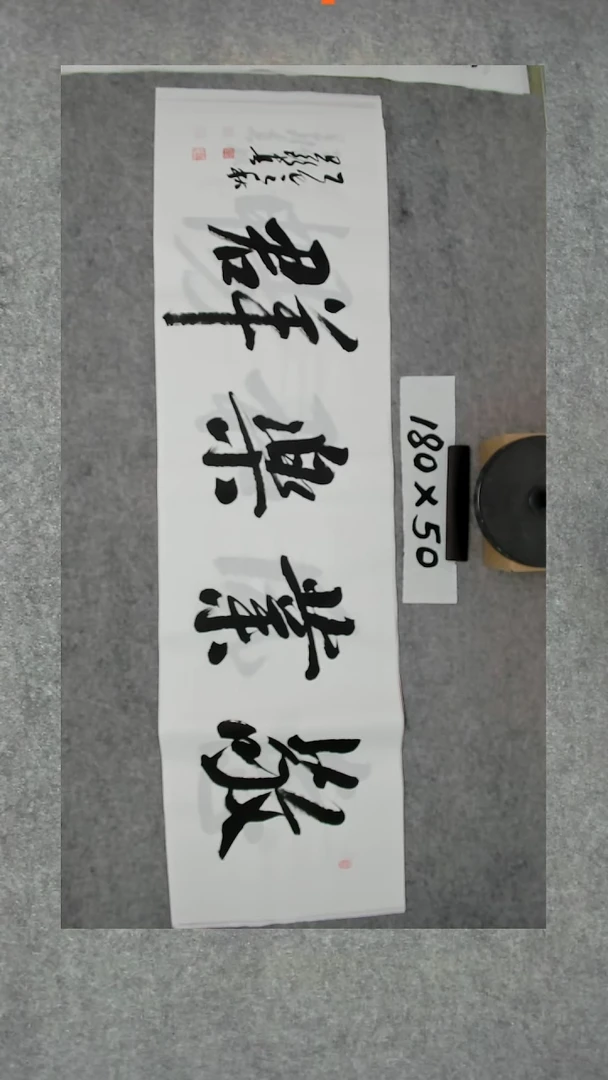 敬業樂群
乙巳之秋
180×50